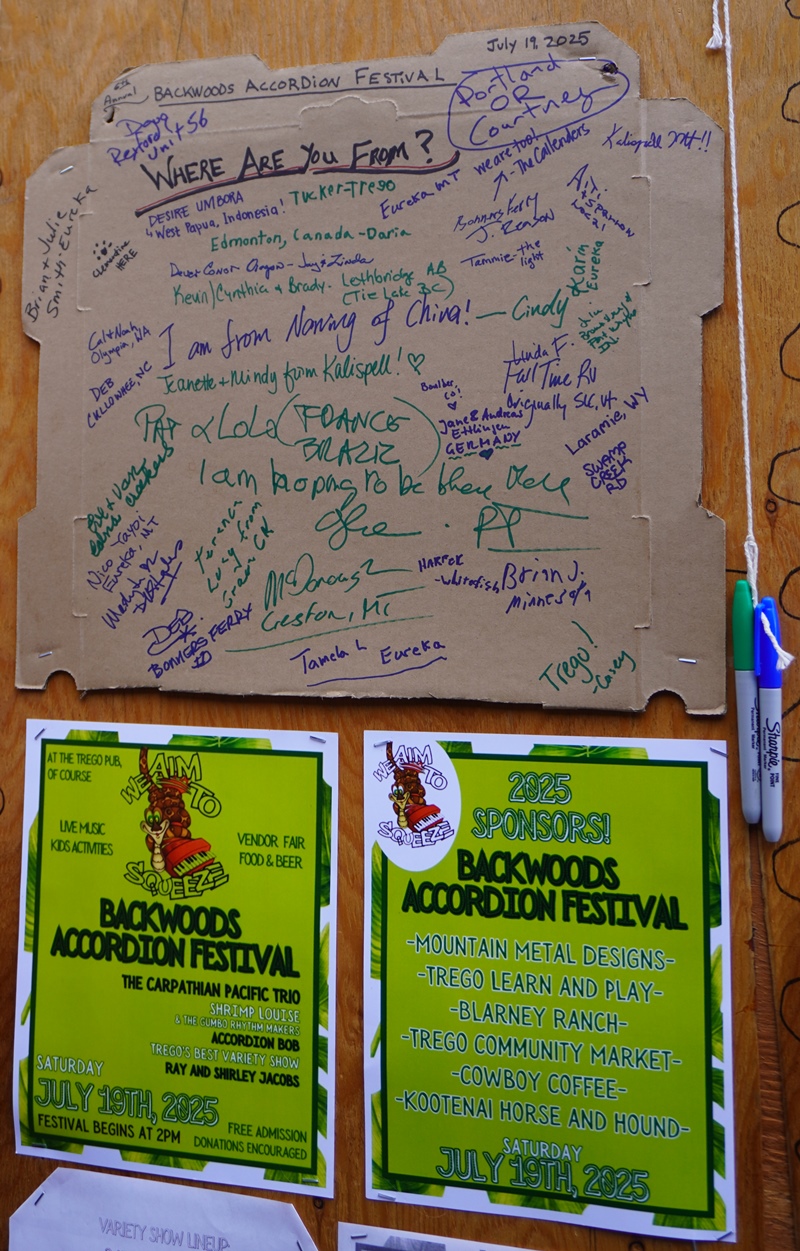 July 19, 2025
6th Annual
BACKWOODS ACCORDION FESTIVAL
Portland
OR
Courtney
Rexford
Unit 56
WHERE ARE YOU FROM?
we are too!
- The Callenders
Kalispell MT!!
Brian + Julie
Smith Eureka
Clementine
HERE
DESIRE UMBORA
West Papua, Indonesia!
Tucker-Trego
Eureka MT
Bonners Ferry
J. Reason
Local
Edmonton, Canada - Daria
Tammie - the
light
Karin
Eureka
Kevin/Cynthia & Brady - Lethbridge AB
(Tie Lake BC)
I am from Nanning of China! - Cindy
Cal + Noah
Olympia, WA
Jeanette + Mindy from Kalispell! ♡
Linda F.
Full Time RV
Originally SLC, UT
DEB
CULLOWHEE, NC
Boulder,
Co!
Jane & Andreas
Ettlingen
GERMANY
Laramie, WY
SWAMP
CREEK
RD
PAT & Lola (FRANCE
BRAZIL)
I am hoping to be there
Eureka, MT
Lucy from
McDonough
Creston, MT
Whitefish
Brian J.
Minnesota
DEB
BONNERS FERRY
ID
Tamela L Eureka
Trego!
- Casey
Sharpie
AT THE TREGO PUB,
OF COURSE
WE AIM
TO
SQUEEZE
LIVE MUSIC
KIDS ACTIVITIES
VENDOR FAIR
FOOD & BEER
BACKWOODS
ACCORDION FESTIVAL
THE CARPATHIAN PACIFIC TRIO
SHRIMP LOUISE
& THE GUMBO RHYTHM MAKERS
ACCORDION BOB
TREGO'S BEST VARIETY SHOW
RAY AND SHIRLEY JACOBS
SATURDAY
JULY 19TH, 2025
FESTIVAL BEGINS AT 2PM
FREE ADMISSION
DONATIONS ENCOURAGED
WE AIM
TO
SQUEEZE
2025
SPONSORS!
BACKWOODS
ACCORDION FESTIVAL
-MOUNTAIN METAL DESIGNS-
-TREGO LEARN AND PLAY-
-BLARNEY RANCH-
-TREGO COMMUNITY MARKET-
-COWBOY COFFEE-
-KOOTENAI HORSE AND HOUND-
SATURDAY
JULY 19TH, 2025
VARIETY SHOW LINEUP